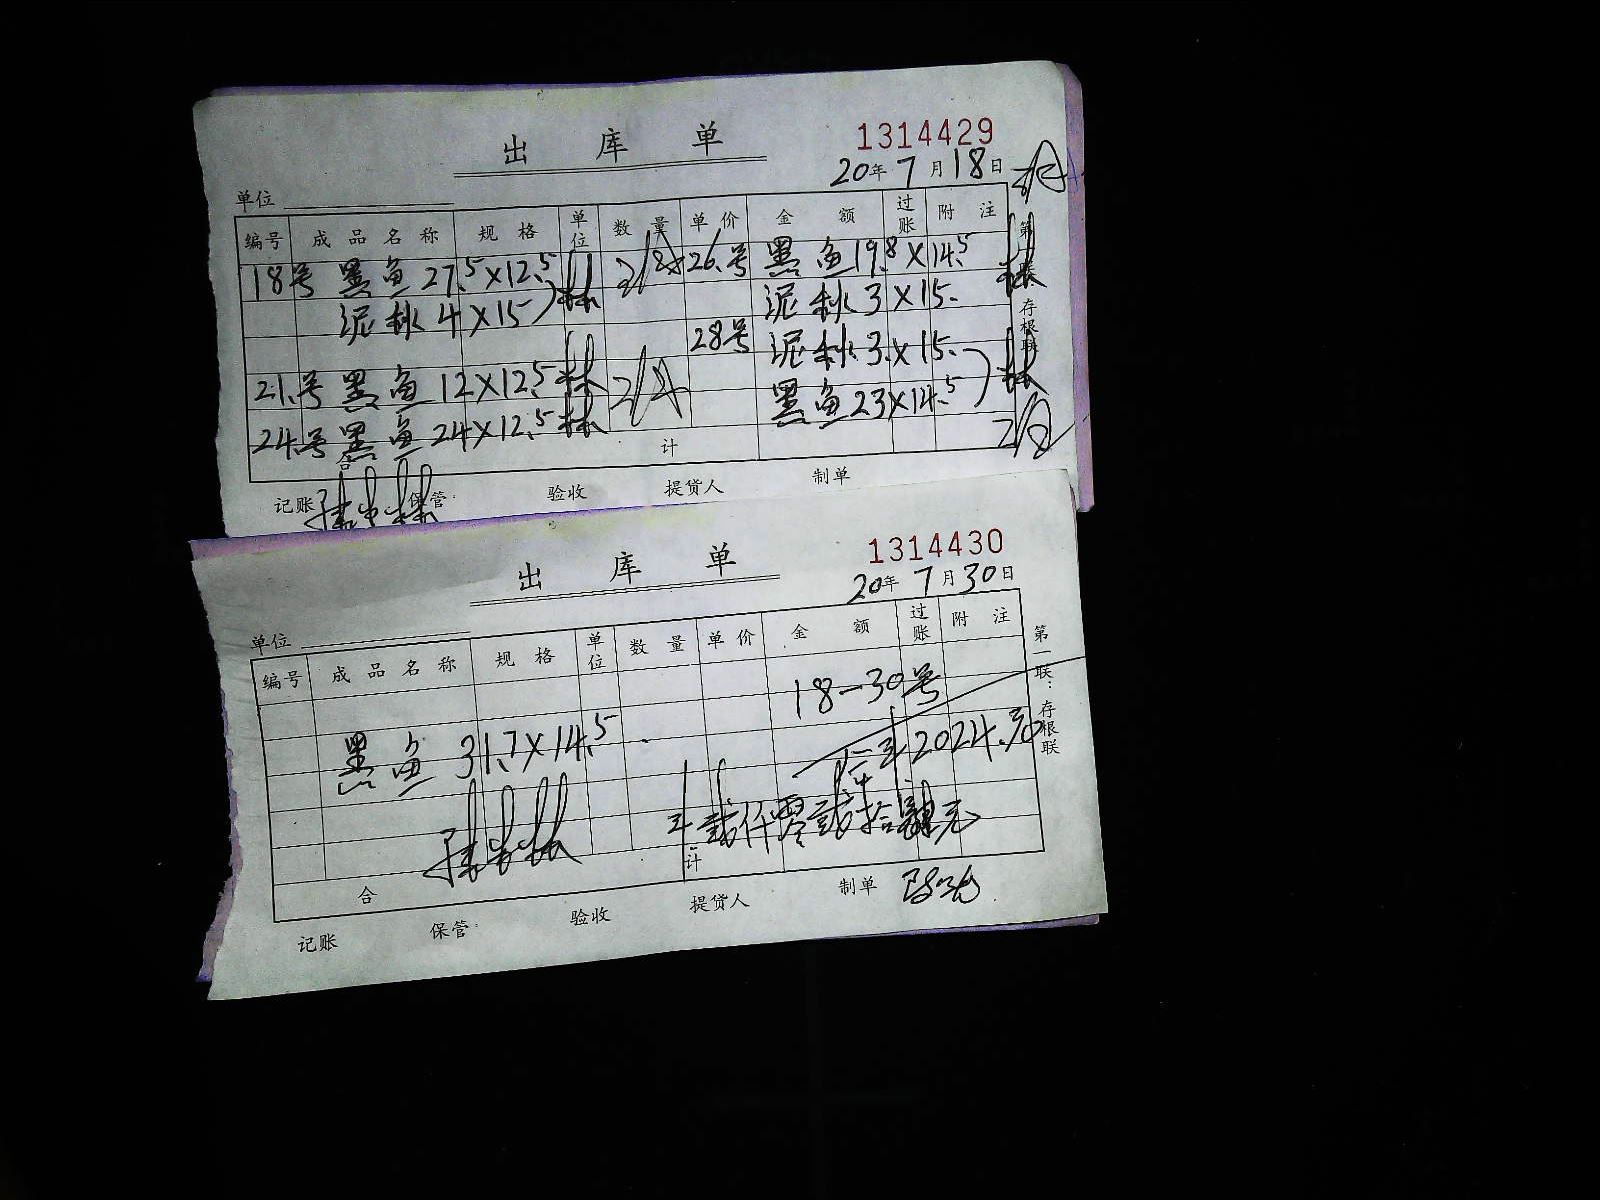 出 库 单
1314429
20年 7月18日
单位
编号 成品名称 规格 单位 数量 单价 金额 过账 附注
18号 黑鱼 27.5×12.5 林 26.号 黑鱼 19.8×14.5 林
泥秋 4×15 泥秋 3×15.
28号 泥秋 3.×15.
21.号 黑鱼 12×12.5 林 黑鱼 23×14.5 林
24.号 黑鱼 24×12.5 林
合 计
记账 保管: 验收 提货人 制单
第一联:存根联
出 库 单
1314430
20年 7月30日
单位
编号 成品名称 规格 单位 数量 单价 金额 过账 附注
18-30号
黑鱼 31.7×14.5
2024.元
贰仟零贰拾肆元
合 计
记账 保管: 验收 提货人 制单
第一联:存根联